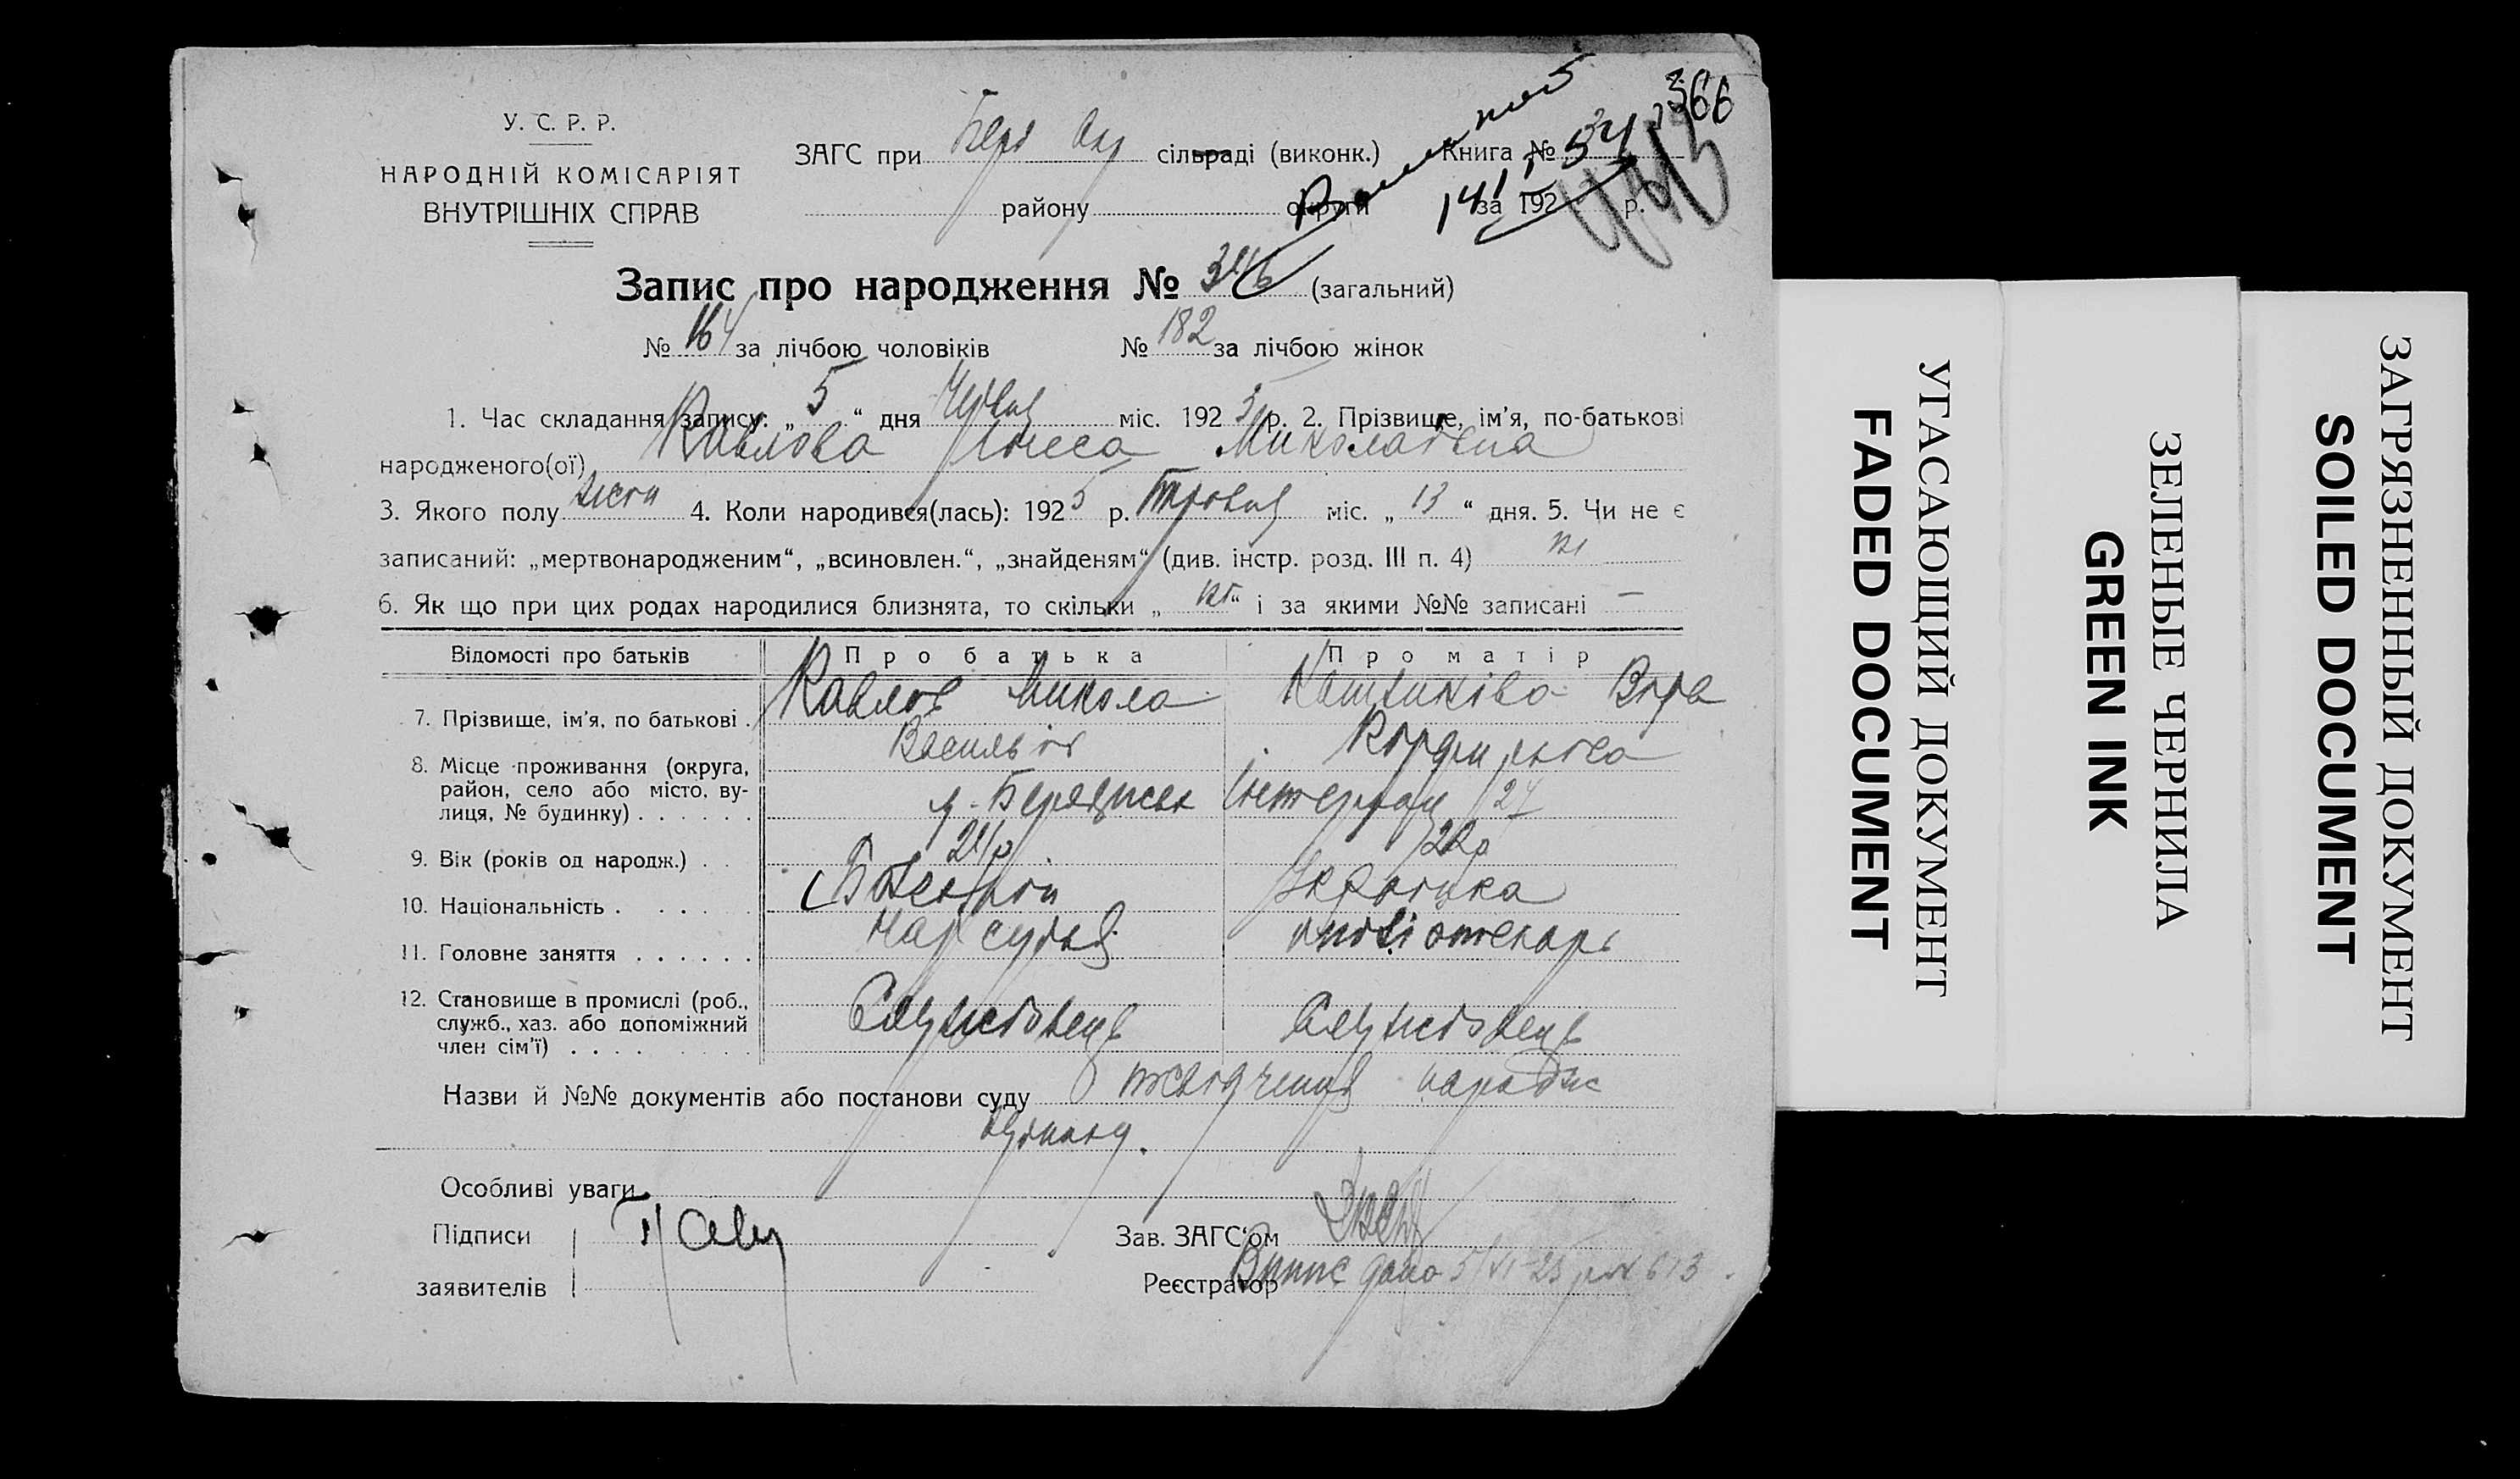 366
У. С. Р. Р.
НАРОДНІЙ КОМІСАРІЯТ
ВНУТРІШНІХ СПРАВ
ЗАГС при Берд Окр сільраді (виконк.) Книга № 34
району округи за 192 р.
Запис про народження № 346 (загальний)
№ 164 за лічбою чоловіків № 182 за лічбою жінок
1. Час складання запису: „ 5 “ дня Червня міс. 192 5 р. 2. Прізвище, ім’я, по-батькові
народженого(ої) Павлова Інеса Миколаївна
3. Якого полу жіноч 4. Коли народився(лась): 192 5 р. Травня міс. „ 13 “ дня. 5. Чи не є
записаний: „мертвонародженим“, „всиновлен.“, „знайденям“ (див. інстр. розд. III п. 4) ні
6. Як що при цих родах народилися близнята, то скільки „ ні “ і за якими №№ записані —
Відомості про батьків Про батька Про матір
7. Прізвище, ім’я, по батькові . Павлов Микола Віра
Васильов
8. Місце проживання (округа,
район, село або місто, ву-
лиця, № будинку) . . . . . . Бердянськ 24
9. Вік (років од народж.) . 24 р 22 р
10. Національність . . . . . Українка
11. Головне заняття . . . . . . Нар суддя бібліотекарь
12. Становище в промислі (роб.,
служб., хаз. або допоміжний
член сім’ї) . . . . Службовець Службовець
Назви й №№ документів або постанови суду
Особливі уваги
Підписи Зав. ЗАГС‘ом
заявителів Реєстратор Випис дано 5/VI 25 р № 613
УГАСАЮЩИЙ ДОКУМЕНТ
FADED DOCUMENT
ЗЕЛЕНЫЕ ЧЕРНИЛА
GREEN INK
ЗАГРЯЗНЕННЫЙ ДОКУМЕНТ
SOILED DOCUMENT